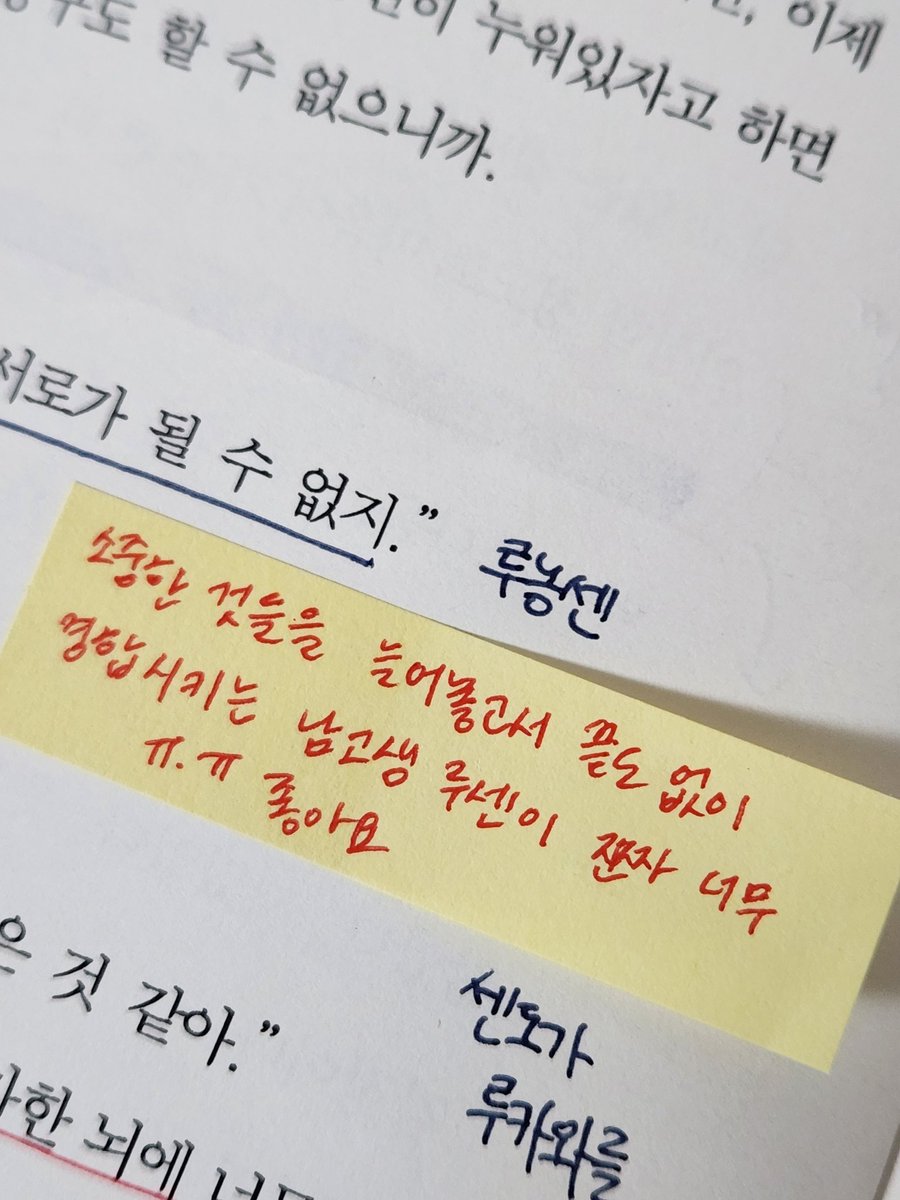 이제
누워있자고 하면
할 수 없으니까.
서로가 될 수 없지.”
루농센
소중한 것들을 늘어놓고서 끝도 없이
결합시키는 남고생 루센이 젼자 너무
ㅠ.ㅠ 좋아요
은 것 같아.”
센도가
루카와를
뇌에